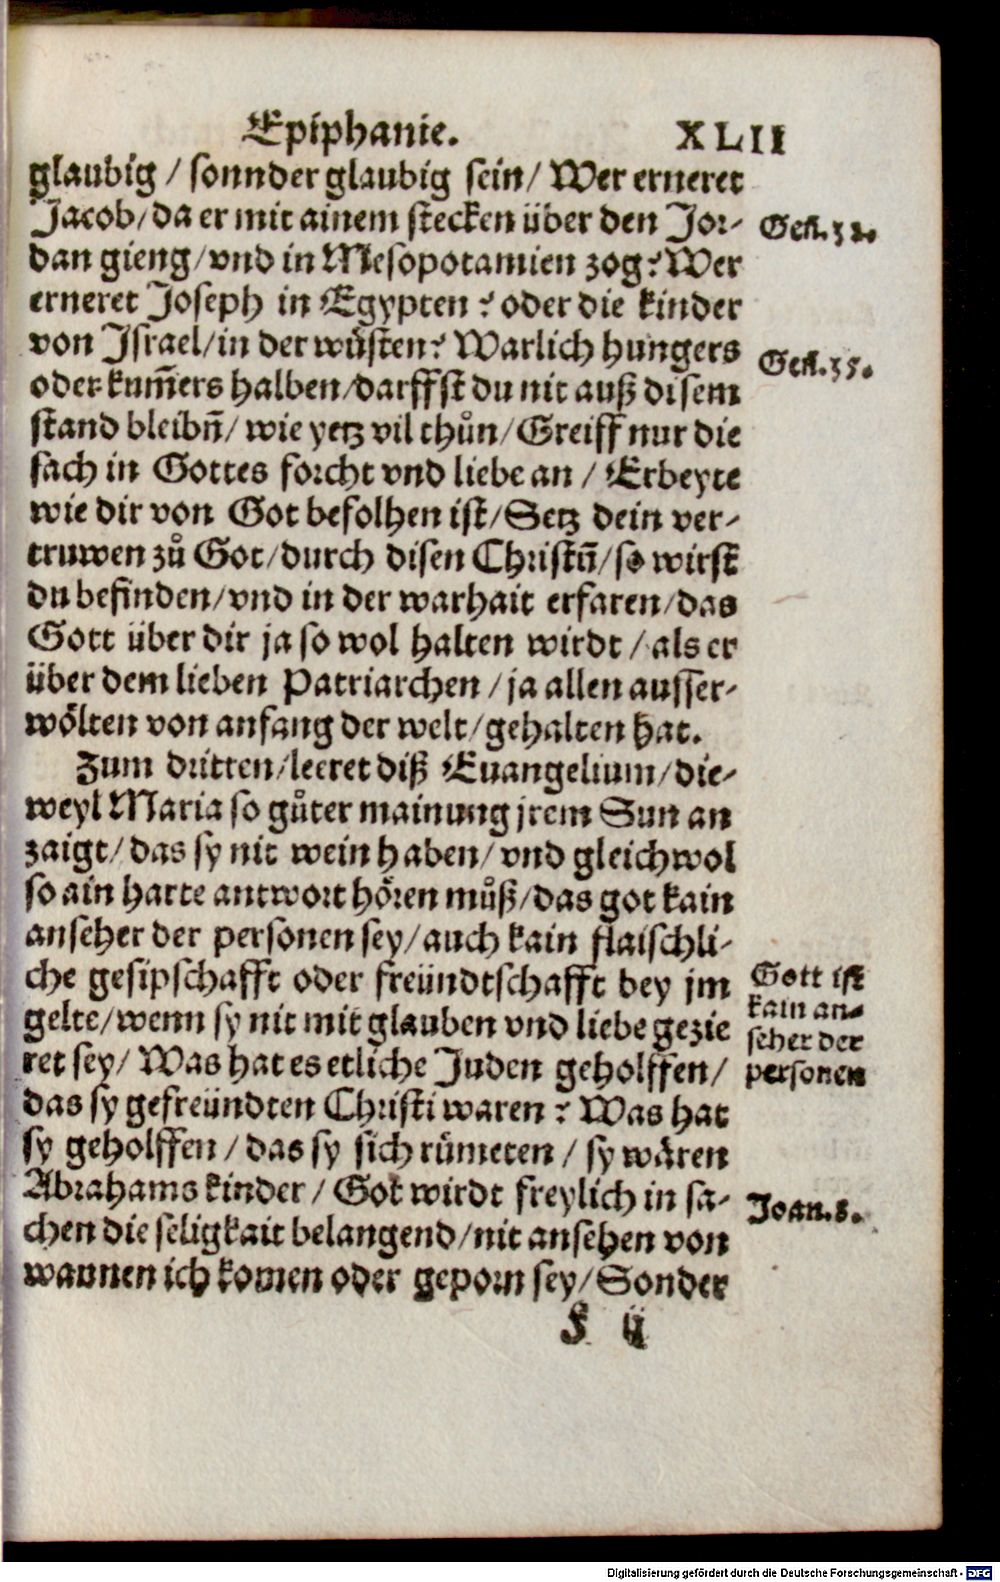 Epiphanie. XLII
glaubig / sonnder glaubig sein / Wer erneret
Jacob / da er mit ainem stecken über den Jor-
dan gieng / vnd in Mesopotamien zog? Wer
erneret Joseph in Egypten? oder die kinder
von Israel / in der wůsten? Warlich hungers
oder kum̄ers halben / darffst du nit auß disem
stand bleibn̄ / wie yetz vil thůn / Greiff nur die
sach in Gottes forcht vnd liebe an / Erbeyte
wie dir von Got befolhen ist / Setz dein ver-
truwen zů Got / durch disen Christū / so wirst
du befinden / vnd in der warhait erfaren / das
Gott über dir ja so wol halten wirdt / als er
über dem lieben Patriarchen / ja allen ausser-
wölten von anfang der welt / gehalten hat.
Zum dritten / leeret diß Euangelium / die-
weyl Maria so gůter mainung jrem Sun an
zaigt / das sy nit wein haben / vnd gleichwol
so ain harte antwort hören můß / das got kain
anseher der personen sey / auch kain flaischli-
che gesipschafft oder freündtschafft bey jm
gelte / wenn sy nit mit glauben vnd liebe gezie
ret sey / Was hat es etliche Juden geholffen /
das sy gefreündten Christi waren? Was hat
sy geholffen / das sy sich růmeten / sy wären
Abrahams kinder / Got wirdt freylich in sa-
chen die seligkait belangend / nit ansehen von
wannen ich komen oder geporn sey / Sonder
F ij
Gen. 32.
Gen. 35.
Gott ist
kain an-
seher der
personen
Joan. 8.
Digitalisierung gefördert durch die Deutsche Forschungsgemeinschaft - DFG